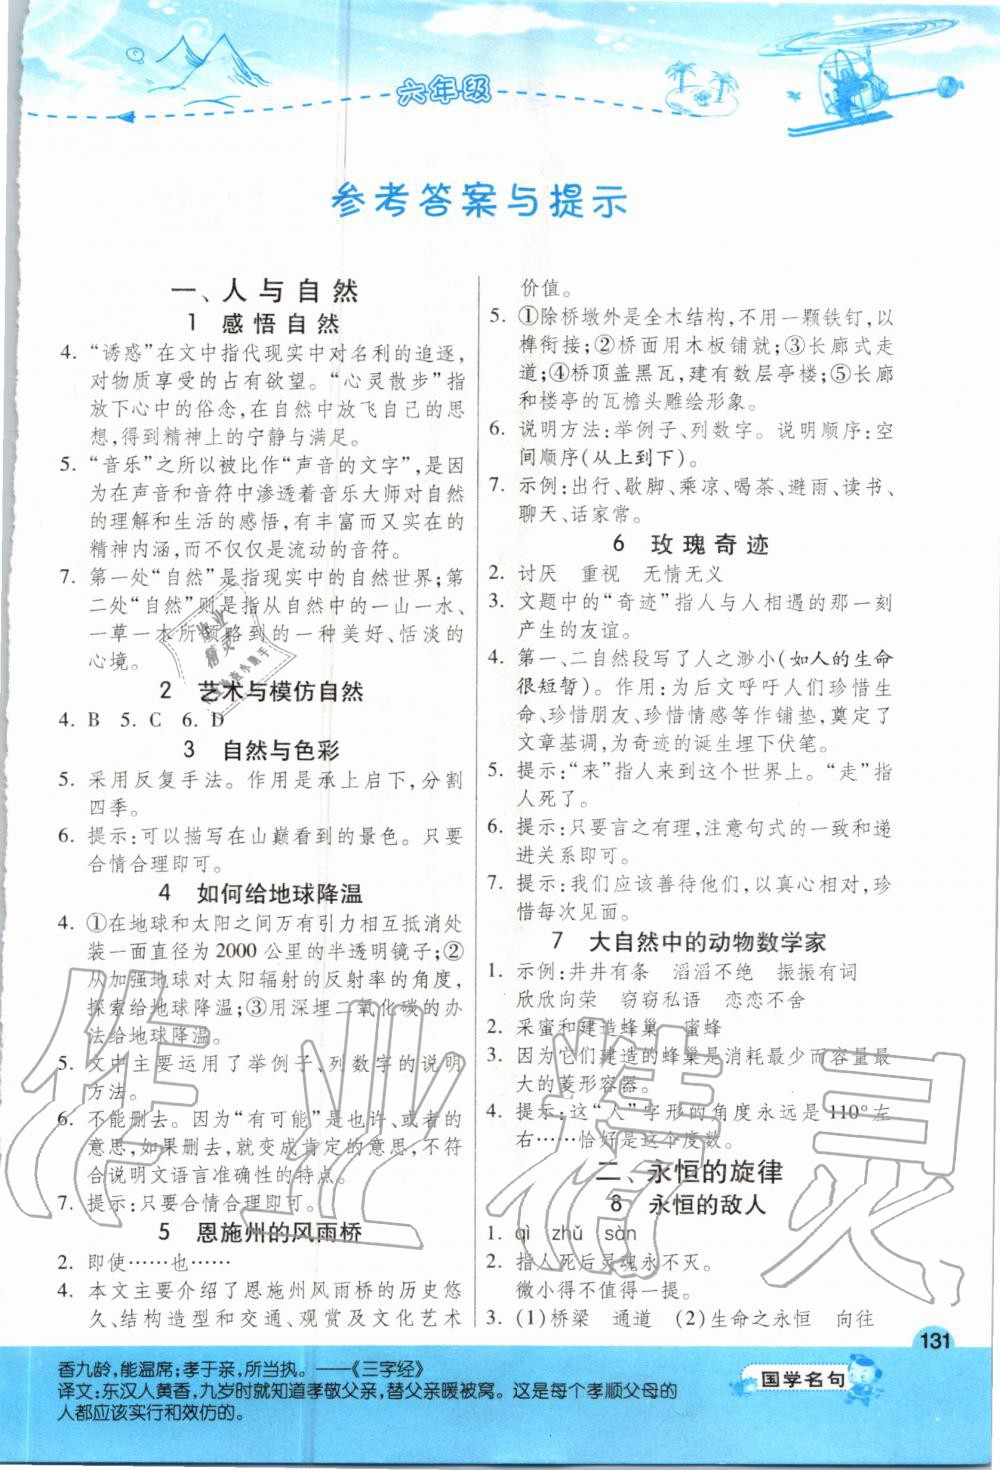 六年级
参考答案与提示
一、人与自然
1 感悟自然
4. “诱惑”在文中指代现实中对名利的追逐，
对物质享受的占有欲望。“心灵散步”指
放下心中的俗念，在自然中放飞自己的思
想，得到精神上的宁静与满足。
5. “音乐”之所以被比作“声音的文字”，是因
为在声音和音符中渗透着音乐大师对自然
的理解和生活的感悟，有丰富而又实在的
精神内涵，而不仅仅是流动的音符。
7. 第一处“自然”是指现实中的自然世界；第
二处“自然”则是指从自然中的一山一水、
一草一木所领略到的一种美好、恬淡的
心境。
2 艺术与模仿自然
4. B 5. C 6. D
3 自然与色彩
5. 采用反复手法。作用是承上启下，分割
四季。
6. 提示：可以描写在山巅看到的景色。只要
合情合理即可。
4 如何给地球降温
4. ①在地球和太阳之间万有引力相互抵消处
装一面直径为 2000 公里的半透明镜子；②
从加强地球对太阳辐射的反射率的角度，
探索给地球降温；③用深埋二氧化碳的办
法给地球降温。
5. 文中主要运用了举例子、列数字的说明
方法。
6. 不能删去。因为“有可能”是也许、或者的
意思，如果删去，就变成肯定的意思，不符
合说明文语言准确性的特点。
7. 提示：只要合情合理即可。
5 恩施州的风雨桥
2. 即使……也……
4. 本文主要介绍了恩施州风雨桥的历史悠
久、结构造型和交通、观赏及文化艺术
价值。
5. ①除桥墩外是全木结构，不用一颗铁钉，以
榫衔接；②桥面用木板铺就；③长廊式走
道；④桥顶盖黑瓦，建有数层亭楼；⑤长廊
和楼亭的瓦檐头雕绘形象。
6. 说明方法：举例子、列数字。说明顺序：空
间顺序（从上到下）。
7. 示例：出行、歇脚、乘凉、喝茶、避雨、读书、
聊天、话家常。
6 玫瑰奇迹
2. 讨厌 重视 无情无义
3. 文题中的“奇迹”指人与人相遇的那一刻
产生的友谊。
4. 第一、二自然段写了人之渺小（如人的生命
很短暂）。作用：为后文呼吁人们珍惜生
命、珍惜朋友、珍惜情感等作铺垫，奠定了
文章基调，为奇迹的诞生埋下伏笔。
5. 提示：“来”指人来到这个世界上。“走”指
人死了。
6. 提示：只要言之有理，注意句式的一致和递
进关系即可。
7. 提示：我们应该善待他们，以真心相对，珍
惜每次见面。
7 大自然中的动物数学家
1. 示例：井井有条 滔滔不绝 振振有词
欣欣向荣 窃窃私语 恋恋不舍
2. 采蜜和建造蜂巢 蜜蜂
3. 因为它们建造的蜂巢是消耗最少而容量最
大的菱形容器。
4. 提示：这“人”字形的角度永远是 110°左
右……恰好是这个度数。
二、永恒的旋律
8 永恒的敌人
1. qì zhǔ sàn
2. 指人死后灵魂永不灭。
微小得不值得一提。
3. (1)桥梁 通道 (2)生命之永恒 向往
131
香九龄，能温席；孝于亲，所当执。——《三字经》
译文：东汉人黄香，九岁时就知道孝敬父亲，替父亲暖被窝。这是每个孝顺父母的
人都应该实行和效仿的。
国学名句
作业精灵